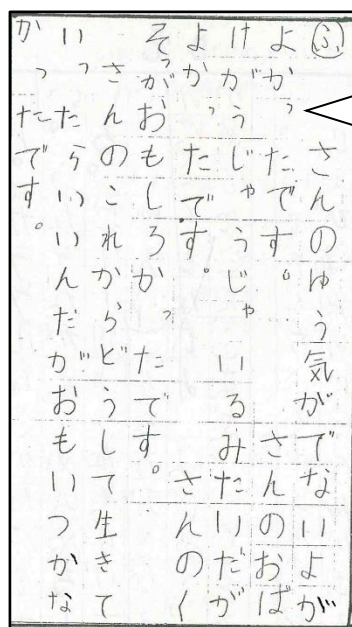 ㋫ さんのゆう気がでないよが
よかったです。 さんのおば
けがうじゃうじゃいるみたいだが
よかったです。 さんのく
そっがおもしろかったです。
さんのこれからどうして生きて
いったらいいんだがおもいつかな
かったです。